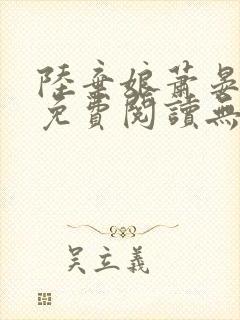 陸棄娘蕭晏
免費閱讀無
吴立義